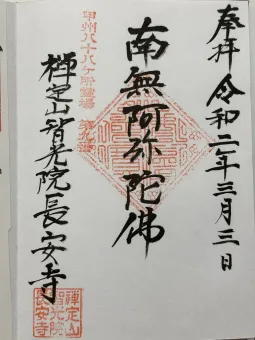 奉拝 令和二年三月三日
甲州八十八ヶ所霊場
南無阿弥陀佛
禅定山智光院長安寺
禅定山
智光院
長安寺